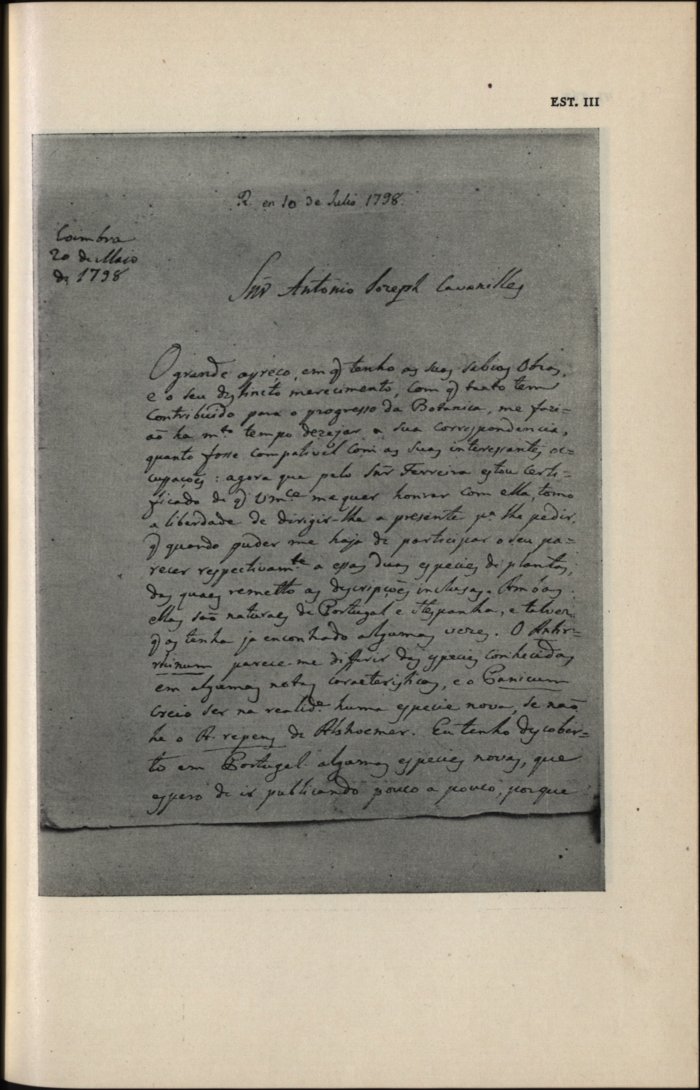 EST. III
R. en 10 de Julio 1798.
Coimbra
20 de Maio
de 1798
Snr̃ Antonio Joseph Cavanilles
O grande apreço, em q̃ tenho as suas sabias Obras,
e o seu distincto merecimento, com q̃ tanto tem
contribuido para o progresso da Botanica, me fazi-
aõ ha m.to tempo dezejar a sua correspondencia,
quanto fosse compativel com as suas interessantes oc-
cupaçoẽs: agora que pelo Snr̃ Ferreira estou certi-
ficado de q̃ Vm.ce me quer honrar com ella, tomo
a liberdade de dirigir-lhe a presente p.a lhe pedir,
q̃ quando puder me haja de participar o seu pa-
recer respectivam.te a essas duas especies de plantas,
das quaes remetto as descripçoẽs inclusas. Ambas
ellas saõ naturaes de Portugal e Hespanha, e talvez
q̃ as tenha ja encontrado algumas vezes. O Antir-
rhinum parece-me differir das especies conhecidas
em algumas notas caracteristicas, e o Panicum
creio ser na realid.e huma especie nova, se naõ
he o P. repens de Alshoemer. Eu tenho descober-
to em Portugal algumas especies novas, que
espero de ir publicando pouco a pouco, porque